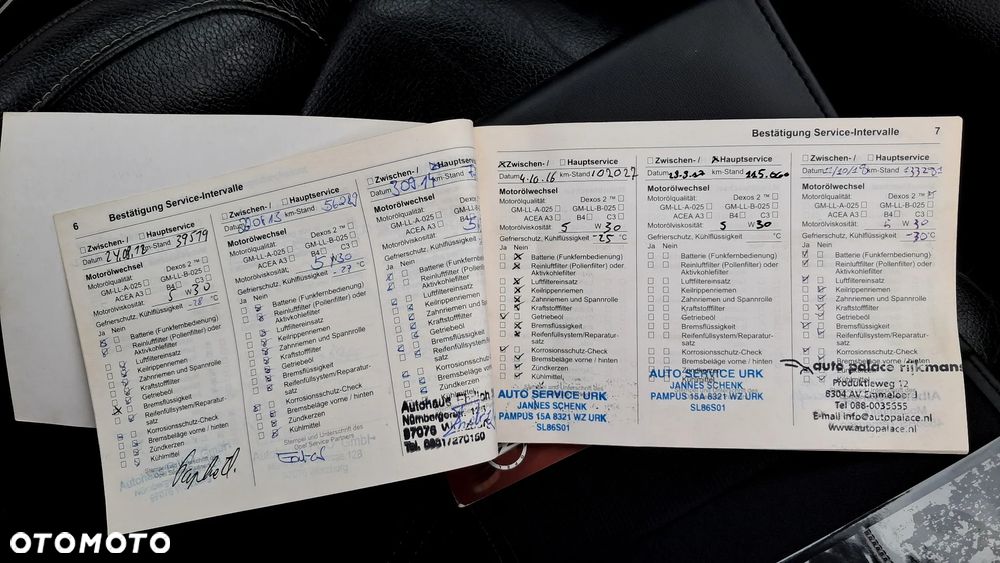 Bestätigung Service-Intervalle
6
Zwischen- / Hauptservice
Datum km-Stand 39519
Motorölwechsel
Motorölqualität: Dexos 2 ™
GM-LL-A-025 GM-LL-B-025
ACEA A3 B4 C3
Motorölviskosität: 5 W 30
Gefrierschutz, Kühlflüssigkeit -28 °C
Ja Nein
Batterie (Funkfernbedienung)
Reinluftfilter (Pollenfilter) oder
Aktivkohlefilter
Luftfiltereinsatz
Keilrippenriemen
Zahnriemen und Spannrolle
Kraftstofffilter
Getriebeöl
Bremsflüssigkeit
Reifenfüllsystem/Reparatur-
satz
Korrosionsschutz-Check
Bremsbeläge vorne / hinten
Zündkerzen
Kühlmittel
Zwischen- / Hauptservice
km-Stand
Motorölwechsel
Motorölqualität: Dexos 2 ™
GM-LL-A-025 GM-LL-B-025
ACEA A3 B4 C3
Motorölviskosität: 5 W 30
Gefrierschutz, Kühlflüssigkeit -27 °C
Ja Nein
Batterie (Funkfernbedienung)
Reinluftfilter (Pollenfilter) oder
Aktivkohlefilter
Luftfiltereinsatz
Keilrippenriemen
Zahnriemen und Spannrolle
Kraftstofffilter
Getriebeöl
Bremsflüssigkeit
Reifenfüllsystem/Reparatur-
satz
Korrosionsschutz-Check
Bremsbeläge vorne / hinten
Zündkerzen
Kühlmittel
Stempel und Unterschrift des
Opel Service Partners
Zwischen- / Hauptservice
Datum
Motorölwechsel
Motorölqualität:
GM-LL-A-025
ACEA A3
Motorölviskosität: 5
Gefrierschutz, Kühlflüssigkeit
Ja Nein
Autohaus
97076
Tel. 0931/270150
Bestätigung Service-Intervalle 7
Zwischen- / Hauptservice
Datum 4.10.16 km-Stand 102027
Motorölwechsel
Motorölqualität: Dexos 2 ™
GM-LL-A-025 GM-LL-B-025
ACEA A3 B4 C3
Motorölviskosität: 5 W 30
Gefrierschutz, Kühlflüssigkeit -25 °C
Ja Nein
Batterie (Funkfernbedienung)
Reinluftfilter (Pollenfilter) oder
Aktivkohlefilter
Luftfiltereinsatz
Keilrippenriemen
Zahnriemen und Spannrolle
Kraftstofffilter
Getriebeöl
Bremsflüssigkeit
Reifenfüllsystem/Reparatur-
satz
Korrosionsschutz-Check
Bremsbeläge vorne / hinten
Zündkerzen
Kühlmittel
AUTO SERVICE URK
JANNES SCHENK
PAMPUS 15A 8321 WZ URK
SL86S01
Zwischen- / Hauptservice
Datum km-Stand 115.000
Motorölwechsel
Motorölqualität: Dexos 2 ™
GM-LL-A-025 GM-LL-B-025
ACEA A3 B4 C3
Motorölviskosität: 5 W 30
Gefrierschutz, Kühlflüssigkeit °C
Ja Nein
Batterie (Funkfernbedienung)
Reinluftfilter (Pollenfilter) oder
Aktivkohlefilter
Luftfiltereinsatz
Keilrippenriemen
Zahnriemen und Spannrolle
Kraftstofffilter
Getriebeöl
Bremsflüssigkeit
Reifenfüllsystem/Reparatur-
satz
Korrosionsschutz-Check
Bremsbeläge vorne / hinten
AUTO SERVICE URK
JANNES SCHENK
PAMPUS 15A 8321 WZ URK
SL86S01
Zwischen- / Hauptservice
Datum km-Stand
Motorölwechsel
Motorölqualität: Dexos 2 ™
GM-LL-A-025 GM-LL-B-025
ACEA A3 B4 C3
Motorölviskosität: 5 W 30
Gefrierschutz, Kühlflüssigkeit -30 °C
Ja Nein
Batterie (Funkfernbedienung)
Reinluftfilter (Pollenfilter) oder
Aktivkohlefilter
Luftfiltereinsatz
Keilrippenriemen
Zahnriemen und Spannrolle
Kraftstofffilter
Getriebeöl
Bremsflüssigkeit
Reifenfüllsystem/Reparatur-
satz
Korrosionsschutz-Check
Bremsbeläge vorne / hinten
auto palace rijkmans
Produktieweg 12
8304 AV Emmeloord
Tel 088-0035555
E-mail info@autopalace.nl
www.autopalace.nl
OTOMOTO